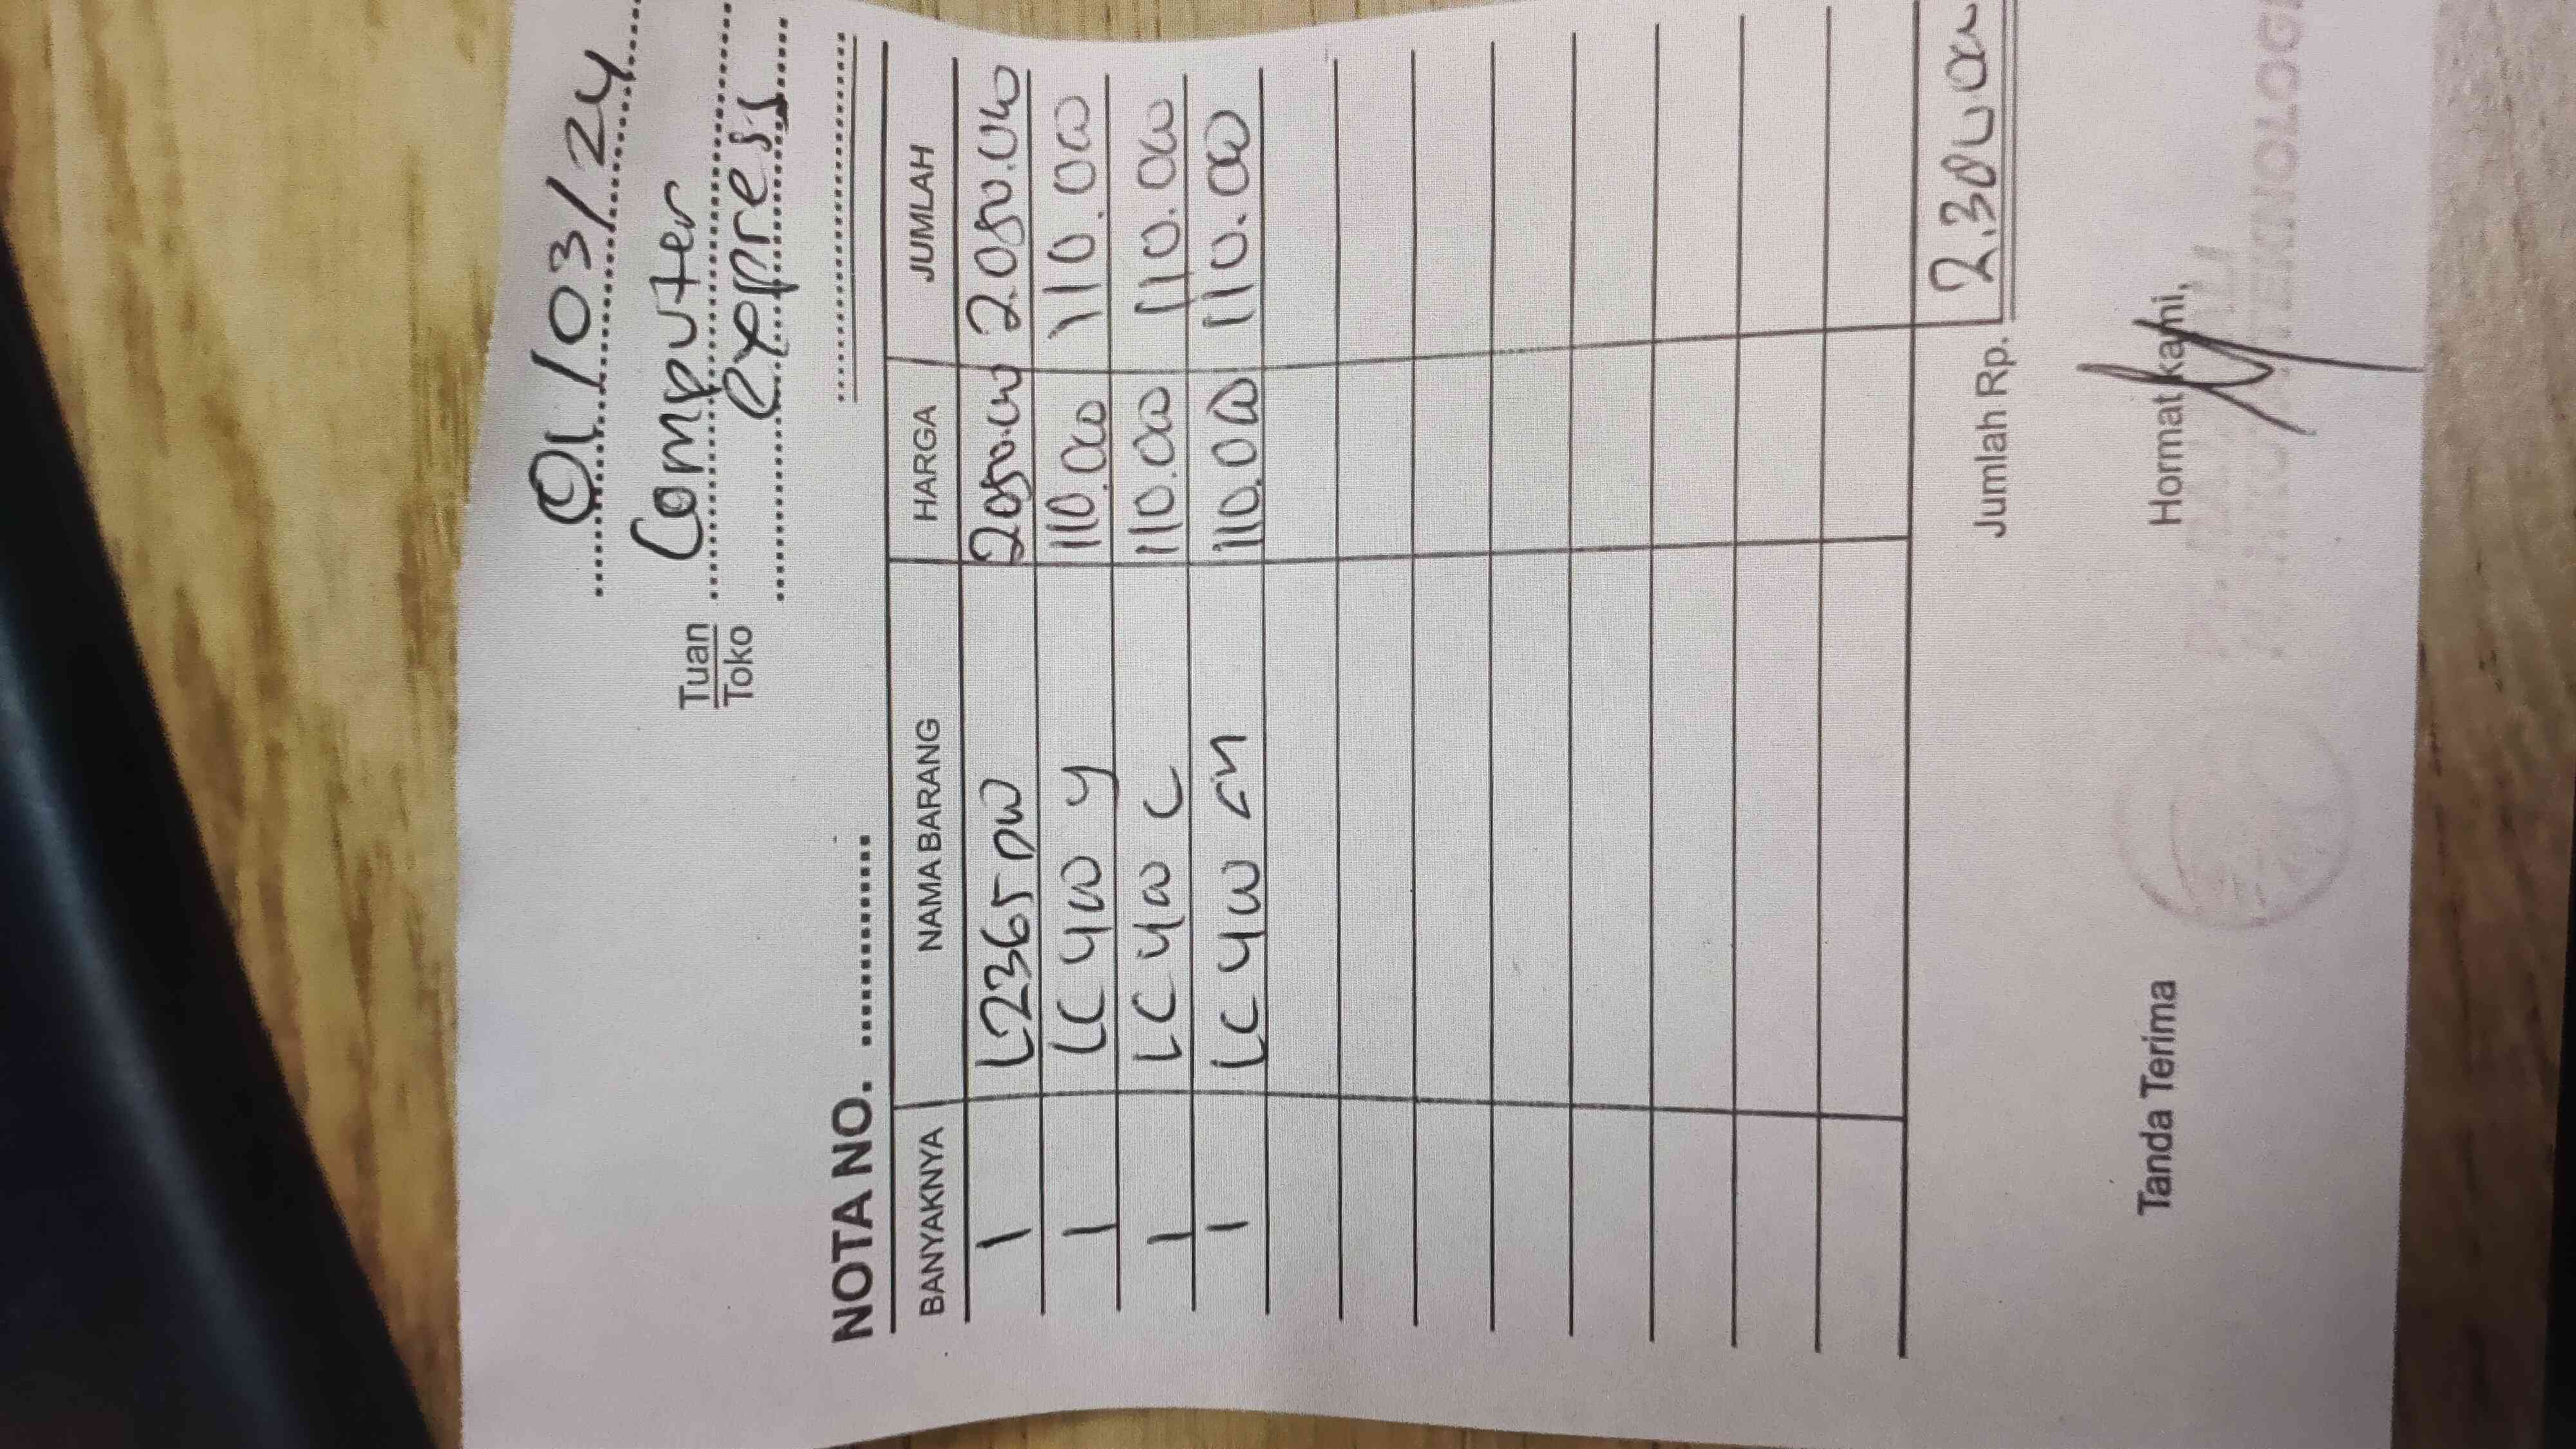 01/03/24
Tuan Computer
Toko express
NOTA NO. ............
BANYAKNYA NAMA BARANG HARGA JUMLAH
1 L2365DW 2050.000 2.050.000
1 LC 400 Y 110.000 110.000
1 LC 400 C 110.000 110.000
1 LC 400 M 110.000 110.000
Jumlah Rp. 2.380.000
Tanda Terima Hormat kami,
TEKNOLOGI